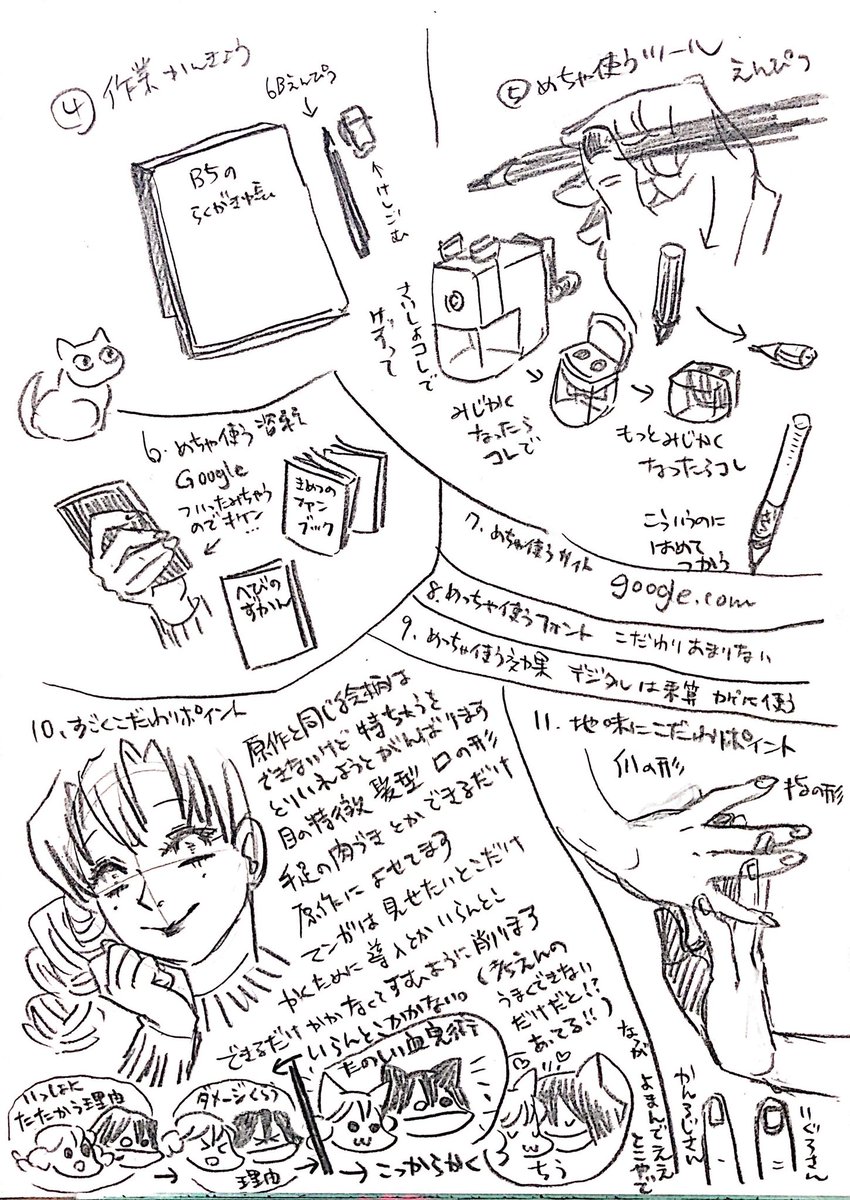 ④ 作業かんきょう
6Bえんぴつ
B5の
らくがき帳
けしごむ
⑤ めちゃ使うツール
えんぴつ
さいしょコレで
けずって
みじかく
なったら
コレで
もっとみじかく
なったらコレ
こういうのに
はめて
つかう
6. めちゃ使う資料
Google
ついったみちゃう
のでキケン…
きめつの
ファン
ブック
へびの
ずかん
7. めちゃ使うサイト
google.com
8. めっちゃ使うフォント こだわりあまりない
9. めっちゃ使う効果 デジタルは乗算 カゲに使う
10. すごくこだわりポイント
原作と同じ絵柄は
できないけど 特ちょうを
とりいれようとがんばります
目の特徴 髪型 口の形
手足の肉づき とか できるだけ
原作に よせてます
マンガは 見せたいとこだけ
かくために 導入とか いらんとこ
できるだけ かかなくてすむように 削ります
いらんとこかかない。
(ちえんの
うまくできない
だけだと!?
あってる!!)
いっしょに
たたかう理由
ダメージくらう
理由
たのしい血鬼術
こっからかく
ちう
11. 地味にこだわりポイント
爪の形
指の形
かんろじさん
いぐろさん
ながよまんでええ
とこやで